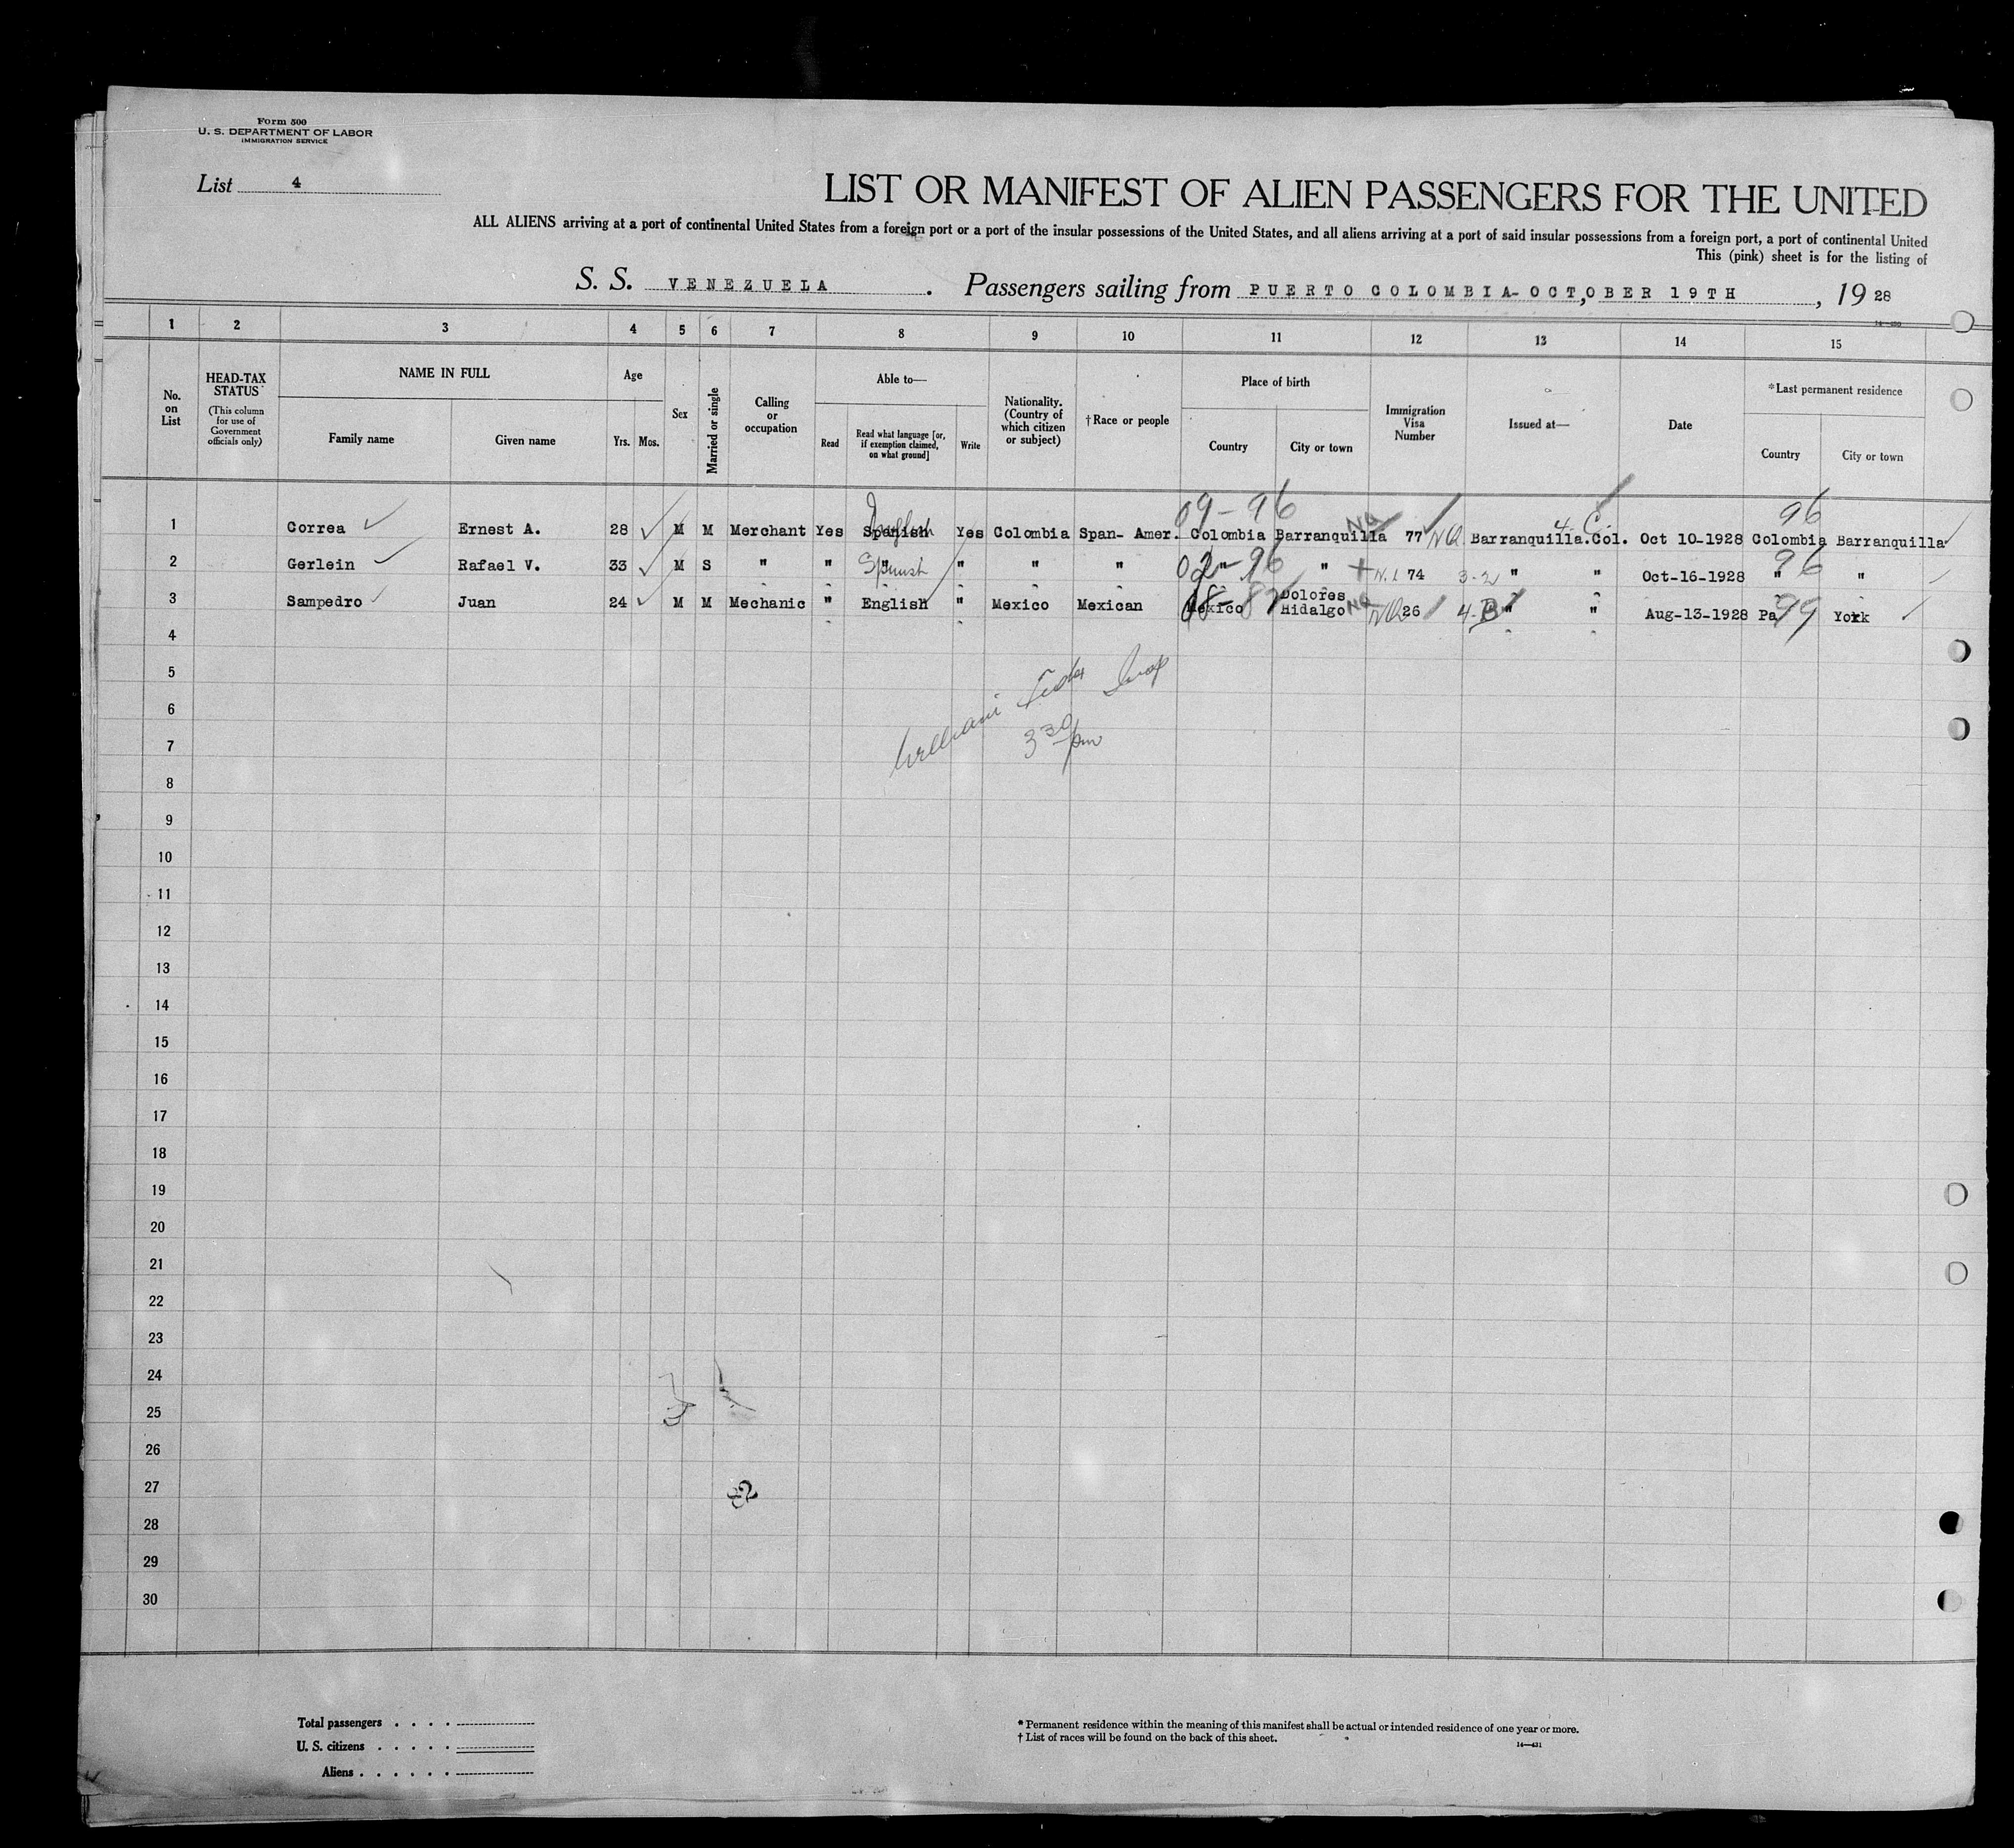 Form 500
U. S. DEPARTMENT OF LABOR
IMMIGRATION SERVICE
List 4
LIST OR MANIFEST OF ALIEN PASSENGERS FOR THE UNITED
ALL ALIENS arriving at a port of continental United States from a foreign port or a port of the insular possessions of the United States, and all aliens arriving at a port of said insular possessions from a foreign port, a port of continental United
This (pink) sheet is for the listing of
S. S. VENEZUELA. Passengers sailing from PUERTO COLOMBIA-OCTOBER 19TH, 1928
1 2 3 4 5 6 7 8 9 10 11 12 13 14 15
No. on List
HEAD-TAX STATUS (This column for use of Government officials only)
NAME IN FULL
Family name Given name
Age
Yrs. Mos.
Sex
Married or single
Calling or occupation
Able to—
Read Read what language [or, if exemption claimed, on what ground] Write
Nationality. (Country of which citizen or subject)
†Race or people
Place of birth
Country City or town
Immigration Visa Number
Issued at—
Date
*Last permanent residence
Country City or town
09-96 96
1 Correa Ernest A. 28 M M Merchant Yes Spanish English Yes Colombia Span- Amer. Colombia Barranquilla NQ 77 NQ 4-C Barranquilla.Col. Oct 10-1928 Colombia Barranquilla
02-96 96
2 Gerlein Rafael V. 33 M S " " " Spanish " " " " " N.I 74 3-2 " " Oct-16-1928 " "
3 Sampedro Juan 24 M M Mechanic " English " Mexico Mexican Mexico Dolores Hidalgo NQ NQ 26 4-B " " Aug-13-1928 Pa 99 York
4
5
6
7
3 30 pm
8
9
10
11
12
13
14
15
16
17
18
19
20
21
22
23
24
25
26
27
28
29
30
Total passengers . . . .
U. S. citizens . . . . .
Aliens . . . . . .
* Permanent residence within the meaning of this manifest shall be actual or intended residence of one year or more.
† List of races will be found on the back of this sheet.
14—431